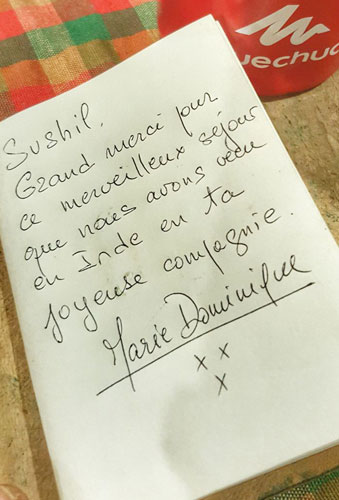 uechua
Sushil,
Grand merci pour
ce merveilleux séjour
que nous avons vécu
en Inde en ta
joyeuse compagnie.
Marie Dominique
x x
x